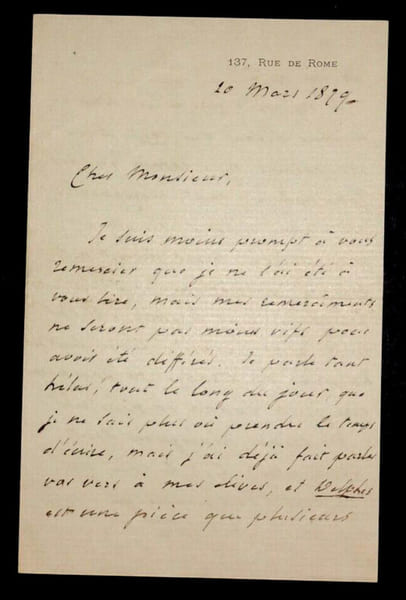 137, RUE DE ROME
20 Mars 1899
Cher Monsieur,
Je suis moins prompt à vous
remercier que je ne l'ai été à
vous lire, mais mes remerciments
ne seront pas moins vifs pour
avoir été différés. Je parle tant
hélas! tout le long du jour, que
je ne sais plus où prendre le temps
d'écrire, mais j'ai déjà fait parler
vos vers à mes élèves, et Delphes
est une pièce que plusieurs